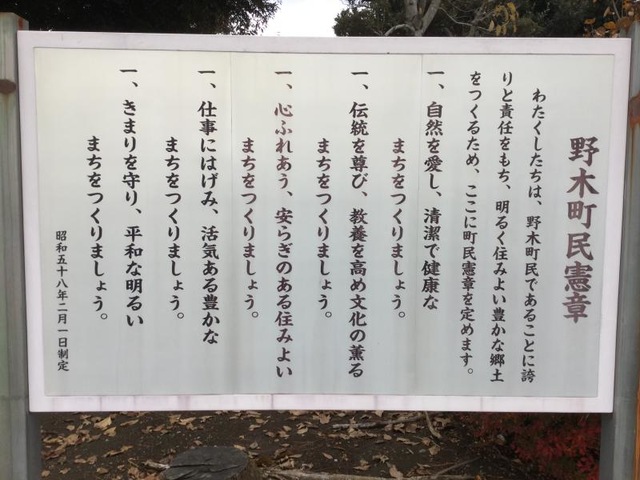 野木町民憲章
わたくしたちは、野木町民であることに誇
りと責任をもち、明るく住みよい豊かな郷土
をつくるため、ここに町民憲章を定めます。
一、自然を愛し、清潔で健康な
まちをつくりましょう。
一、伝統を尊び、教養を高め文化の薫る
まちをつくりましょう。
一、心ふれあう、安らぎのある住みよい
まちをつくりましょう。
一、仕事にはげみ、活気ある豊かな
まちをつくりましょう。
一、きまりを守り、平和な明るい
まちをつくりましょう。
昭和五十八年二月一日制定